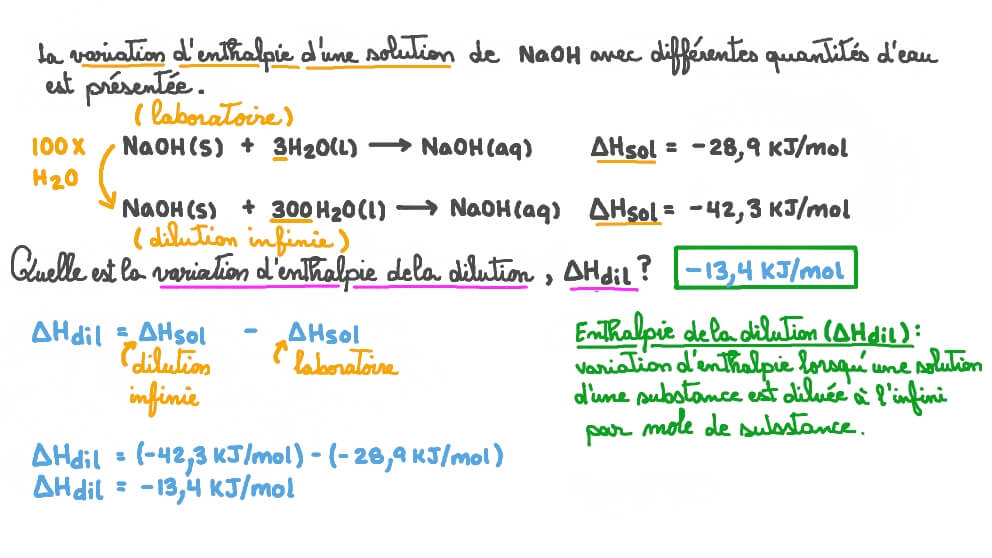 La variation d'enthalpie d'une solution de NaOH avec différentes quantités d'eau
est présentée.
(laboratoire)
100X NaOH(s) + 3H2O(l) ⟶ NaOH(aq) ΔHsol = -28,9 KJ/mol
H2O
NaOH(s) + 300H2O(l) ⟶ NaOH(aq) ΔHsol = -42,3 KJ/mol
(dilution infinie)
Quelle est la variation d'enthalpie de la dilution, ΔHdil? -13,4 KJ/mol
ΔHdil = ΔHsol - ΔHsol
dilution laboratoire
infinie
ΔHdil = (-42,3 KJ/mol) - (-28,9 KJ/mol)
ΔHdil = -13,4 KJ/mol
Enthalpie de la dilution (ΔHdil) :
variation d'enthalpie lorsqu'une solution
d'une substance est diluée à l'infini
par mole de substance.